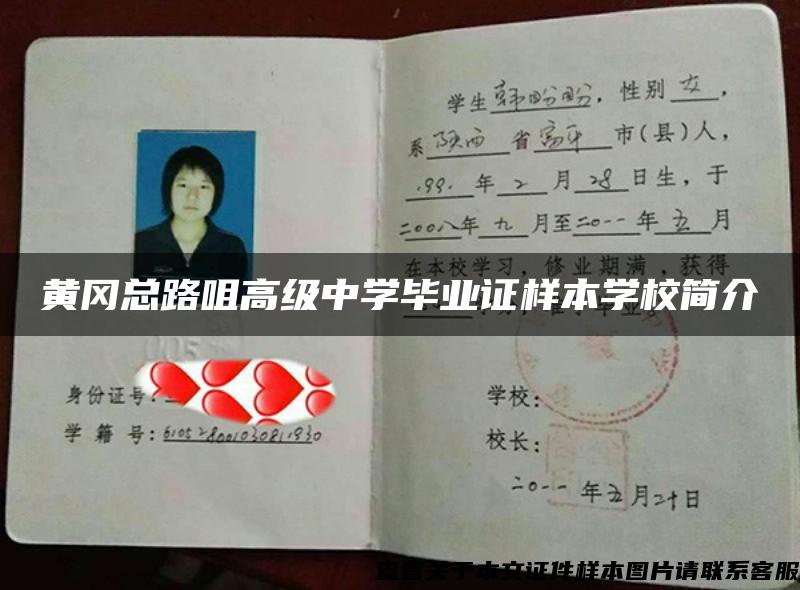 学生韩盼盼，性别女，
系陕西省富平市(县)人，
1991年2月28日生，于
二00八年九月至二0一一年五月
在本校学习，修业期满，获得
黄冈总路咀高级中学毕业证样本学校简介
005
身份证号:
学籍号:610528001030811930
学校:
校长:
二0一一年五月二十日
查看关于本文证件样本图片请联系客服